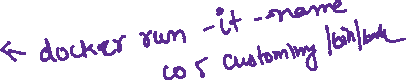 ← docker run -it -name
cos customimg /bin/bash